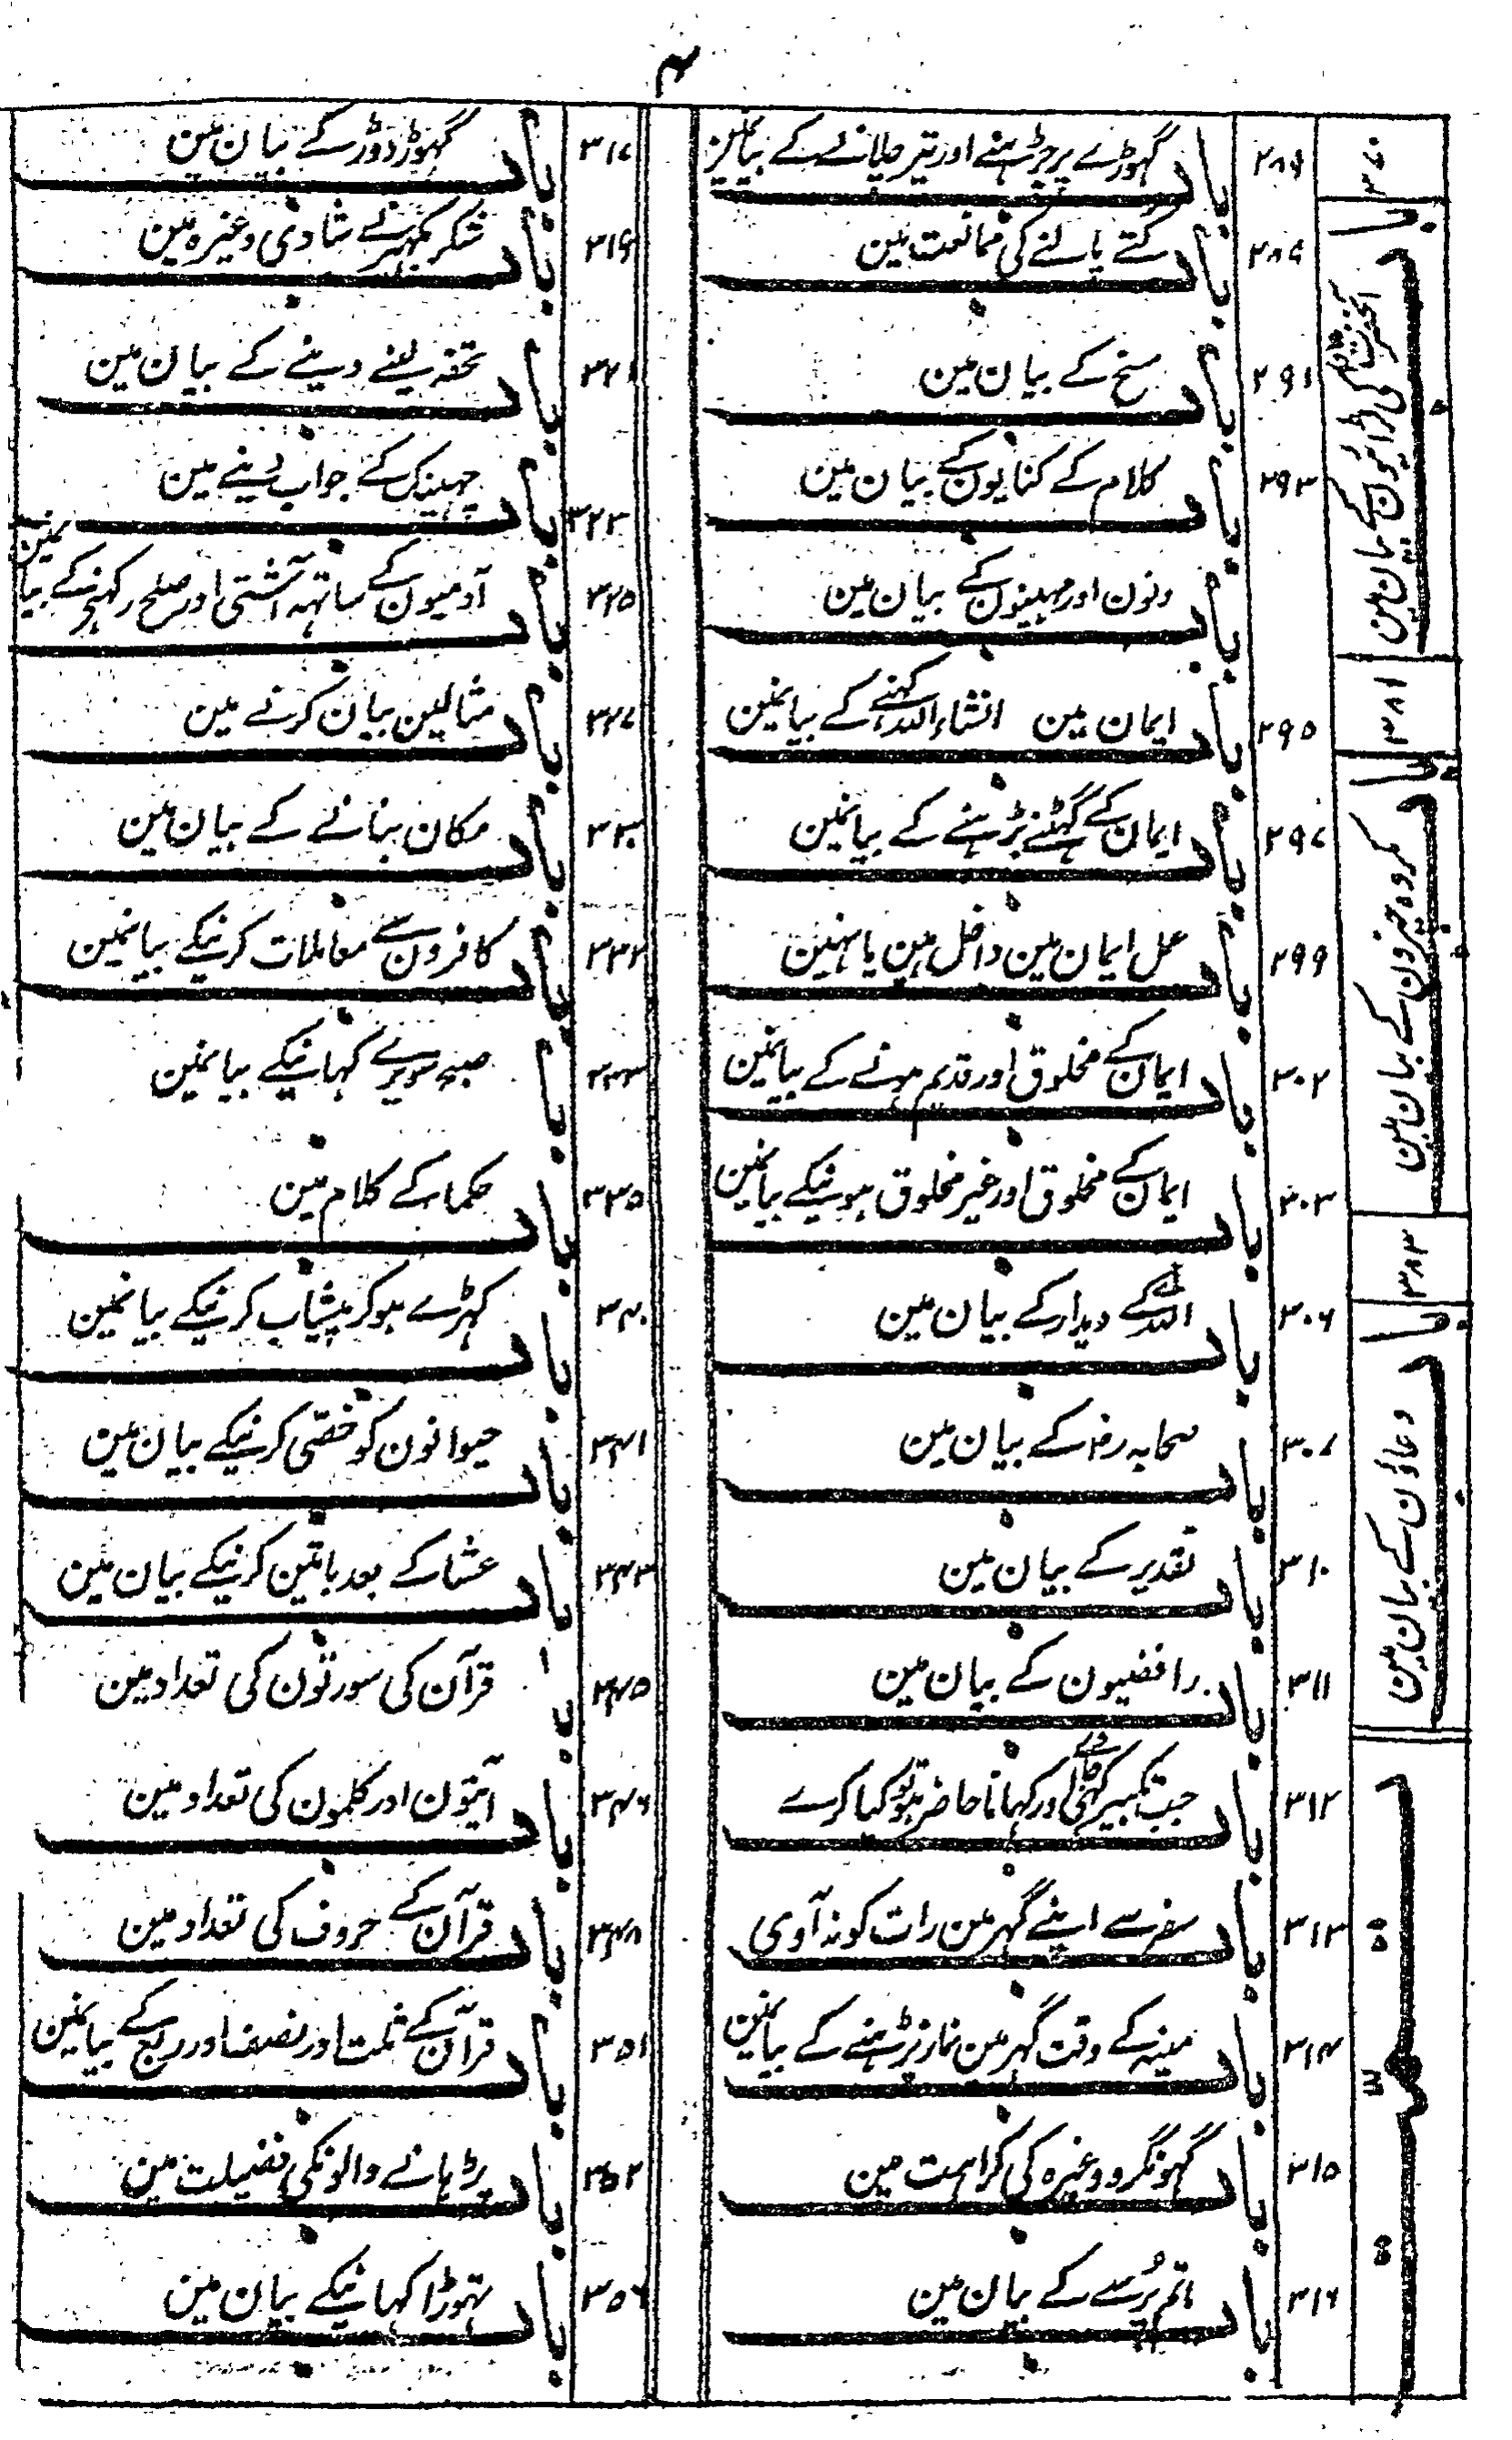 ۴
۲۸۹ باب گہوڑے پر چڑہنے اور تیر چلانے کے بیانمین
۲۸۹ باب کتے پالنے کی ممانعت مین
۲۹۱ باب مسخ کے بیان مین
۲۹۳ باب کلام کے کنایون کے بیان مین
باب دنون اور مہینون کے بیان مین
۲۹۵ باب ایمان مین انشاء اللہ کہنے کے بیانمین
۲۹۷ باب ایمان کے گہٹنے بڑہنے کے بیانمین
۲۹۹ باب عمل ایمان مین داخل ہین یا نہین
۳۰۲ باب ایمان کے مخلوق اور قدیم ہونے کے بیانمین
۳۰۳ باب ایمان کے مخلوق اور غیر مخلوق ہونیکے بیانمین
۳۰۶ باب اللہ کے دیدار کے بیان مین
۳۰۷ باب صحابہ رض کے بیان مین
۳۱۰ باب تقدیر کے بیان مین
۳۱۱ باب رافضیون کے بیان مین
۳۱۲ باب جب تکبیر کہی جائے اور کہانا حاضر ہو تو کیا کرے
۳۱۳ باب سفر سے اپنے گہر مین رات کو نہ آوی
۳۱۴ باب مینہ کے وقت گہر مین نماز پڑہنے کے بیانمین
۳۱۵ باب گہونگرو وغیرہ کی کراہت مین
۳۱۶ باب ماتم پرسے کے بیان مین
۳۱۷ باب گہوڑ دوڑ کے بیان مین
۳۱۹ باب شکر بکہیرنے شادی وغیرہ مین
۳۲۱ باب تحفہ لینے دینے کے بیان مین
۳۲۳ باب چہینک کے جواب دینے مین
۳۲۵ باب آدمیون کے ساتہہ آشتی اور صلح رکہنے کے بیانمین
۳۲۷ باب مثالین بیان کرنے مین
۳۳۰ باب مکان بنانے کے بیان مین
۳۳۲ باب کافرون سے معاملات کرنیکے بیانمین
۳۳۳ باب صبح سویرے کہانیکے بیانمین
۳۳۵ باب حکما کے کلام مین
۳۴۰ باب کہڑے ہو کر پیشاب کرنیکے بیانمین
۳۴۱ باب حیوانون کو خصّی کرنیکے بیان مین
۳۴۳ باب عشا کے بعد باتین کرنیکے بیان مین
۳۴۵ باب قرآن کی سورتون کی تعداد مین
۳۴۶ باب آیتون اور کلمون کی تعداد مین
۳۴۸ باب قرآن کے حروف کی تعداد مین
۳۵۱ باب قرآن کے ثلث اور نصف اور ربع کے بیانمین
۳۵۲ باب پڑہانے والونکی فضیلت مین
۳۵۶ باب تہوڑا کہانیکے بیان مین
۳۷۰ باب آنحضرت کی لڑائیون کے بیان مین
۳۸۱ باب مکروہ چیزون کے بیان مین
۳۸۳ باب دعاؤن کے بیان مین